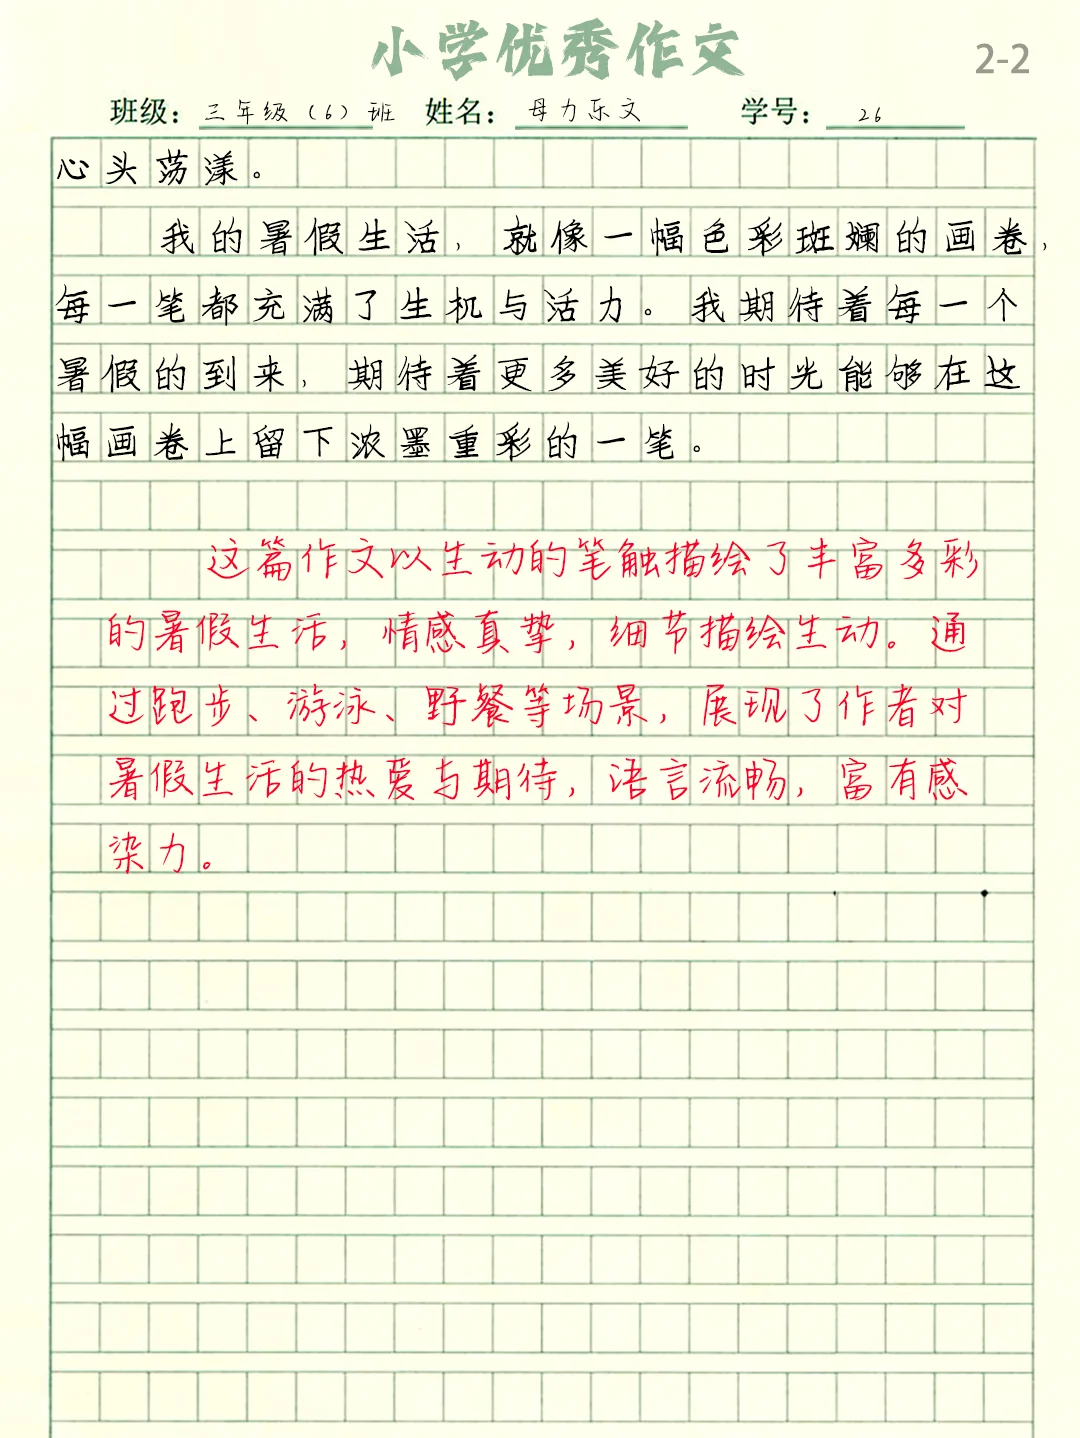 小学优秀作文
2-2
班级：三年级（6）班 姓名：母力乐文 学号：26
心头荡漾。
我的暑假生活，就像一幅色彩斑斓的画卷，
每一笔都充满了生机与活力。我期待着每一个
暑假的到来，期待着更多美好的时光能够在这
幅画卷上留下浓墨重彩的一笔。
这篇作文以生动的笔触描绘了丰富多彩
的暑假生活，情感真挚，细节描绘生动。通
过跑步、游泳、野餐等场景，展现了作者对
暑假生活的热爱与期待，语言流畅，富有感
染力。